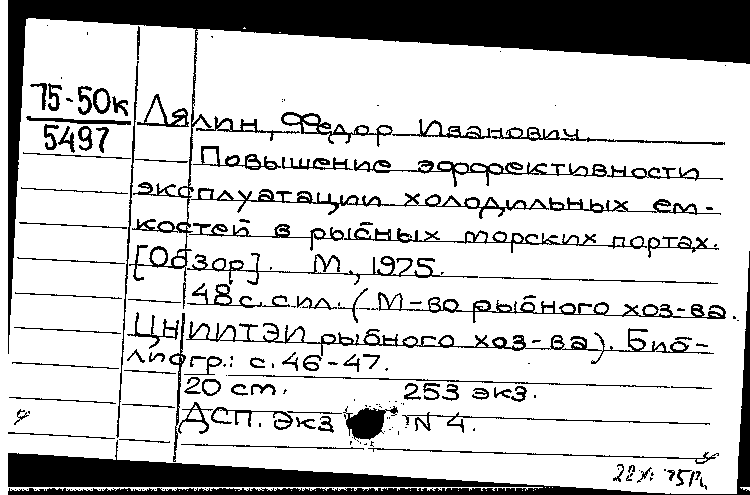 75-50к
5497
Лялин, Федор Иванович.
Повышение эффективности
эксплуатации холодильных ем-
костей в рыбных морских портах.
[Обзор]. М., 1975.
48 с. с ил. (М-во рыбного хоз-ва.
ЦНИИТЭИ рыбного хоз-ва). Биб-
лиогр.: с. 46-47.
20 см. 253 экз.
ДСП. Экз N 4.